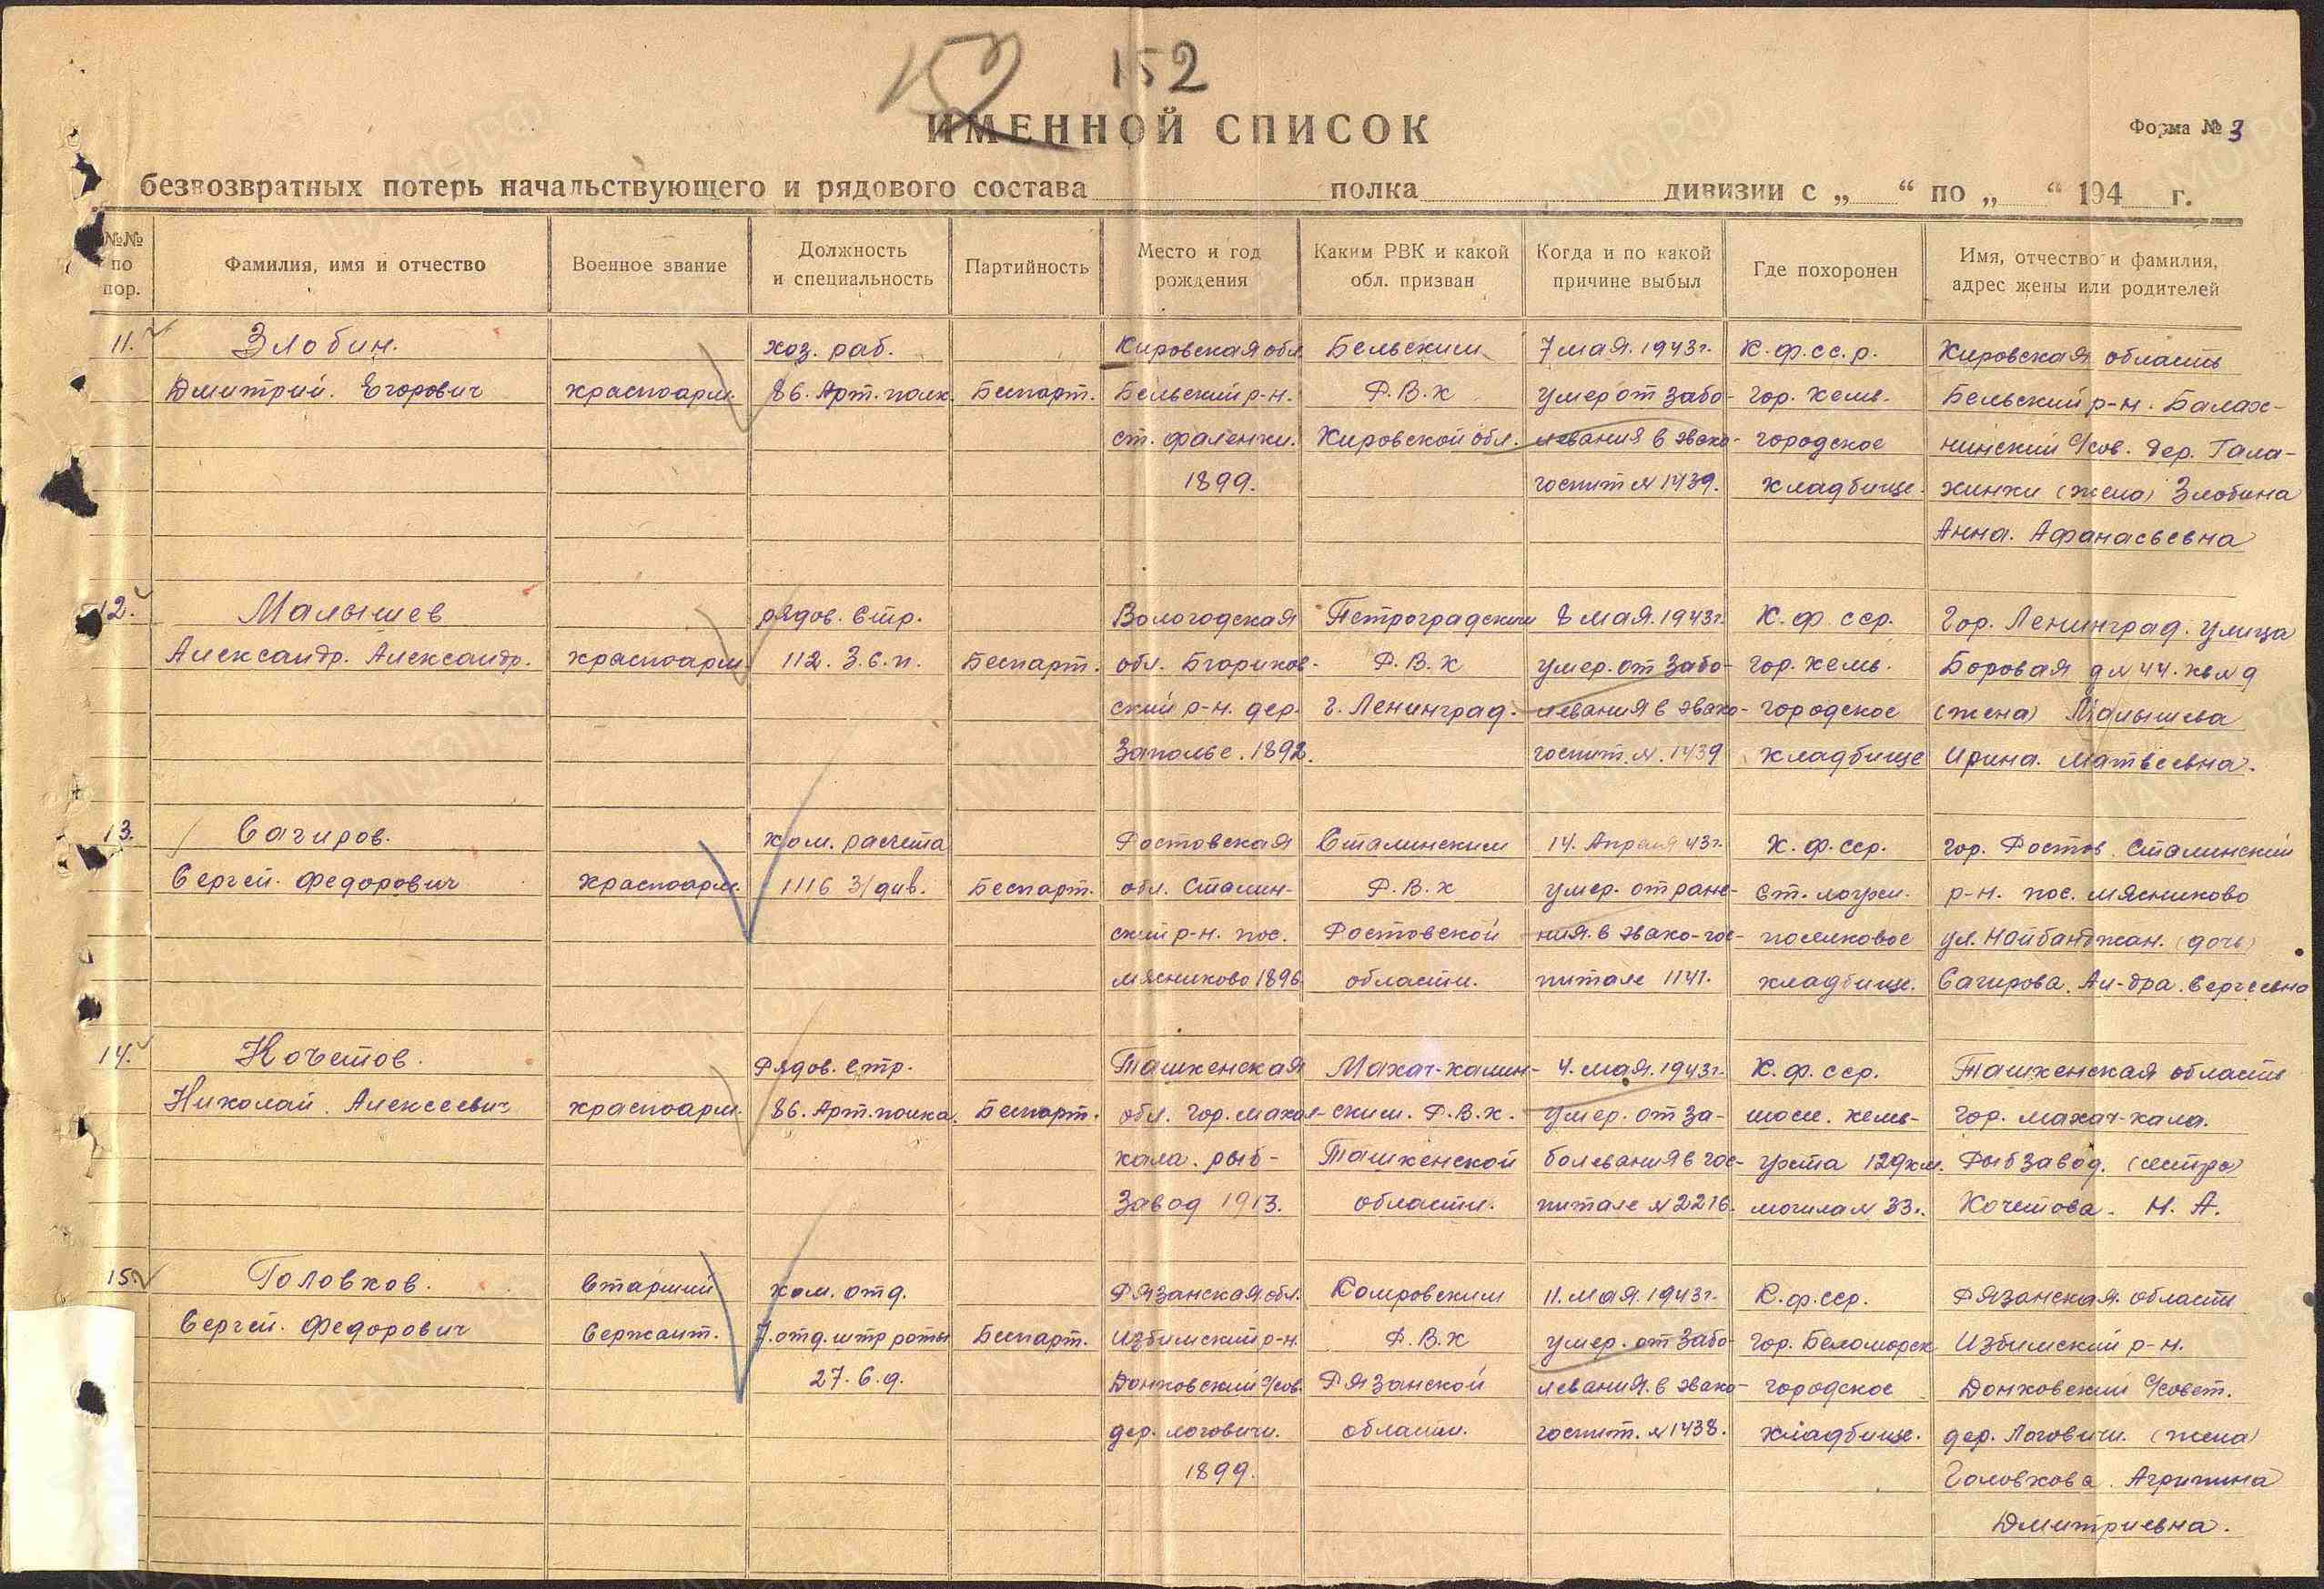 152
ИМЕННОЙ СПИСОК
Форма № 3
безвозвратных потерь начальствующего и рядового состава полка дивизии с „ “ по „ “ 194 г.
№№ по пор.
Фамилия, имя и отчество
Военное звание
Должность и специальность
Партийность
Место и год рождения
Каким РВК и какой обл. призван
Когда и по какой причине выбыл
Где похоронен
Имя, отчество и фамилия, адрес жены или родителей
11. Злобин. хоз. раб. Кировская обл. Бельским 7 мая. 1943г. К.ф.сс.р. Кировская область
Дмитрий. Егорович красноарм. 86. Арт. полк Беспарт. Бельский р-н. Р.В.К гор. Кемь. Бельский р-н. Балах-
умер от забо-
ст. Фаленки. Кировской обл. левания в эвако- городское нинский с/сов. дер. Гала-
1899. госпит № 1439. кладбище. хинки (жена) Злобина
Анна. Афанасьевна
12. Малышев рядов. стр. Вологодская Петроградским 8 мая. 1943г. К.ф.сср. Гор. Ленинград. улица
Александр. Александр. красноарм. 112. З.С.П. Беспарт. обл. Р.В.К умер. от забо- гор. Кемь. Боровая д № 44. кв № 9
ский р-н. дер. г. Ленинград. левания в эвако- городское (жена) Малышева
Заполье. 1892. госпит. №. 1439 кладбище Ирина. Матвеевна.
13. Сагиров. ком. расчета Ростовская Сталинским 14. Апреля 43г. К.ф.сср. гор. Ростов. Сталинский
Сергей. Федорович красноарм. 1116 З/див. Беспарт. обл. Сталин- Р.В.К умер. от ране- ст. лоухи. р-н. пос. мясниково
ский р-н. пос. Ростовской ния. в эвако-гос- поселковое (дочь)
мясниково 1896 области. питале 1141. кладбище. Сагирова. Ал-дра. Сергеевна
14. Кочетов. Рядов. стр. Ташкенская Махач-калин- 4. мая. 1943г. К.ф.сср. Ташкенская область
Николай. Алексеевич красноарм. 86. Арт. полка. Беспарт. обл. гор. махач- ским. Р.В.К. умер. от за- шоссе. Кемь- гор. махач-кала.
кала. рыб- Ташкенской болевания в гос- Ухта 129 км. Рыбзавод. (сестра)
завод 1913. области. питале № 2216. могила № 33. Кочетова. Н. А.
15. Головков. Старший ком. отд. Рязанская обл. 11. мая. 1943г. К.ф.сср. Рязанская. область
Сергей. Федорович сержант. 7. отд. штр роты Беспарт. р-н. Р.В.К умер. от забо- гор. Беломорск р-н.
27. с.д. Донковский с/сов. Рязанской левания. в эвако- городское Донковский с/совет.
дер. логовичи. области. госпит. № 1438. кладбище. дер. Логовичи. (жена)
1899. Головкова. Агрипина
Дмитриевна.